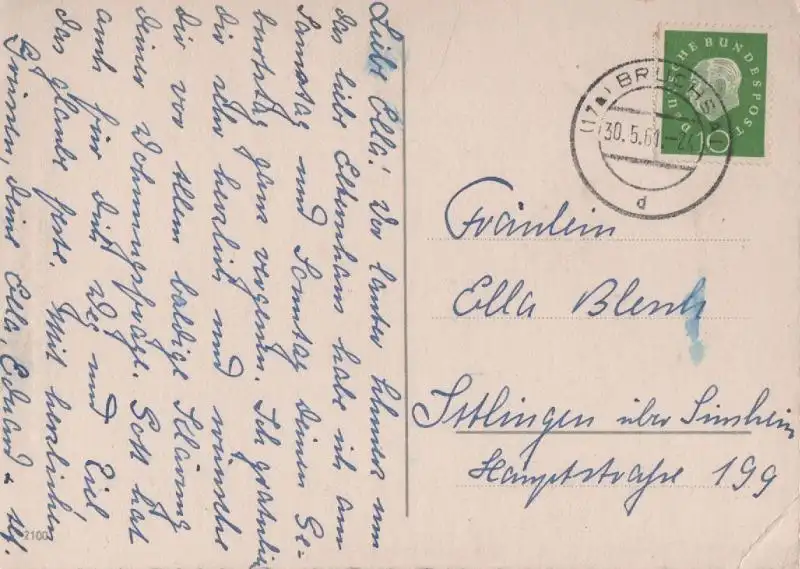 Liebe Ella! Vor lauter Schmerz um
das liebe Elternhaus habe ich am
Samstag und Sonntag Deinen Ge-
burtstag ganz vergessen. Ich gratulie
dir sehr herzlich und wünsche
dir vor allem baldige Klärung
deiner Wohnungsfrage. Gott hat
auch für Dich Weg und Ziel,
das glaube fest. Mit herzlichen
Grüssen, Deine Ella, Eduard u.
2100
DEUTSCHE BUNDESPOST
10
(17a) BRUCHS
30.5.61.-2
d
Fräulein
Ella Blesch
Ittlingen über Sinsheim
Hauptstraße 199